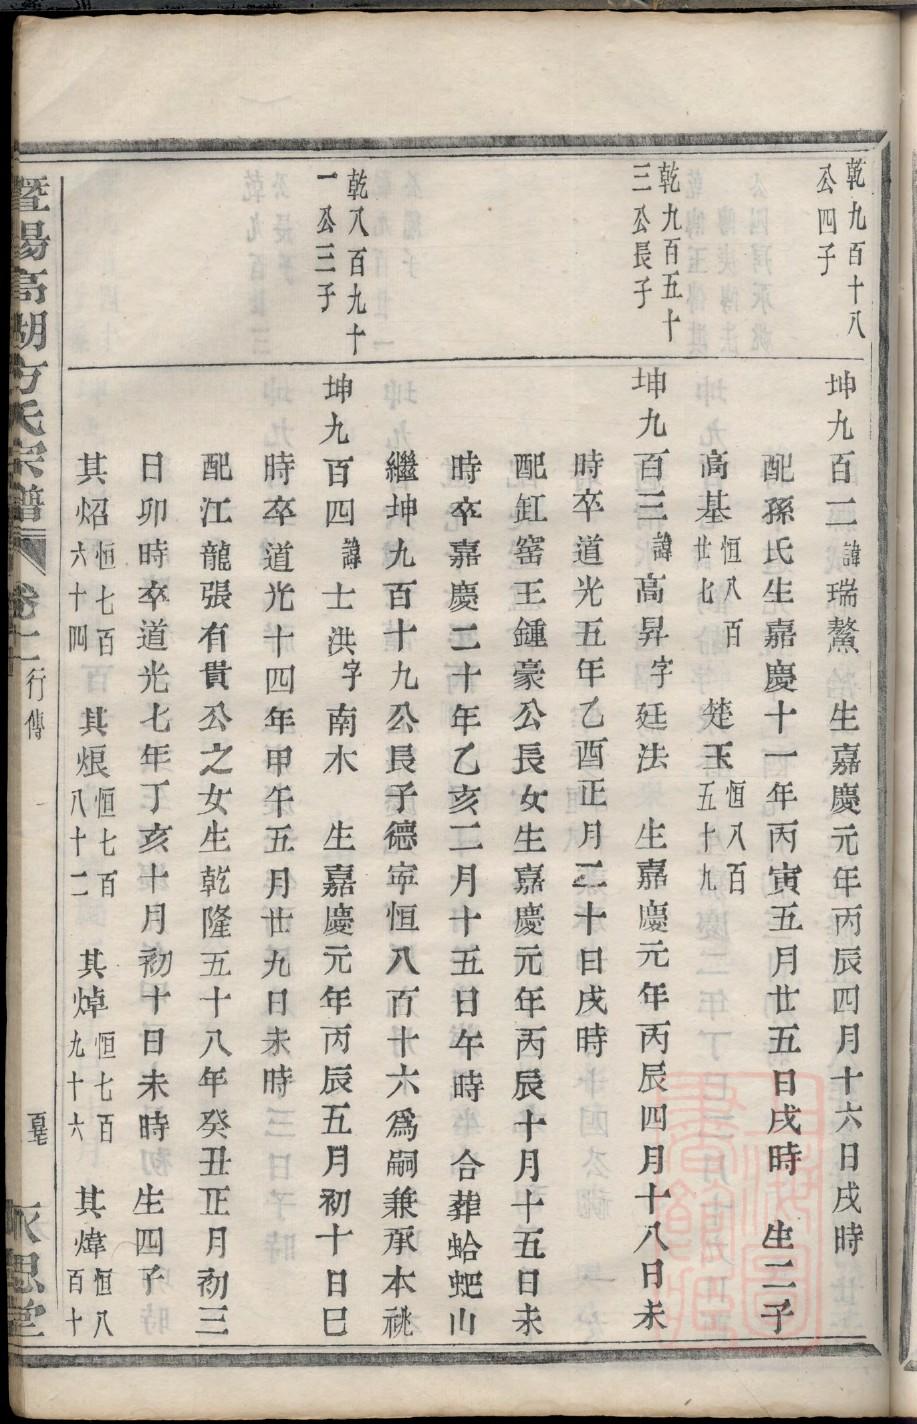 乾九百十八
公四子
坤九百二諱瑞鰲生嘉慶元年丙辰四月十六日戌時
配孫氏生嘉慶十一年丙寅五月廿五日戌時 生二子
高基恒八百廿七 楚玉恒八百五十九
乾九百五十
三公長子
坤九百三諱高昇字廷法 生嘉慶元年丙辰四月十八日未
時卒道光五年乙酉正月二十日戌時
配缸窰王鍾豪公長女生嘉慶元年丙辰十月十五日未
時卒嘉慶二十年乙亥二月十五日午時 合葬蛤蚆山
繼坤九百十九公長子德寧恒八百十六爲嗣兼承本祧
乾八百九十
一公三子
坤九百四諱士洪字南木 生嘉慶元年丙辰五月初十日巳
時卒道光十四年甲午五月廿九日未時
配江龍張有貴公之女生乾隆五十八年癸丑正月初三
日卯時卒道光七年丁亥十月初十日未時 生四子
其炤恒七百六十四 其烺恒七百八十二 其焯恒七百九十六 其煒恒八百十
暨陽高湖方氏宗譜 卷十一 行傳 永思堂